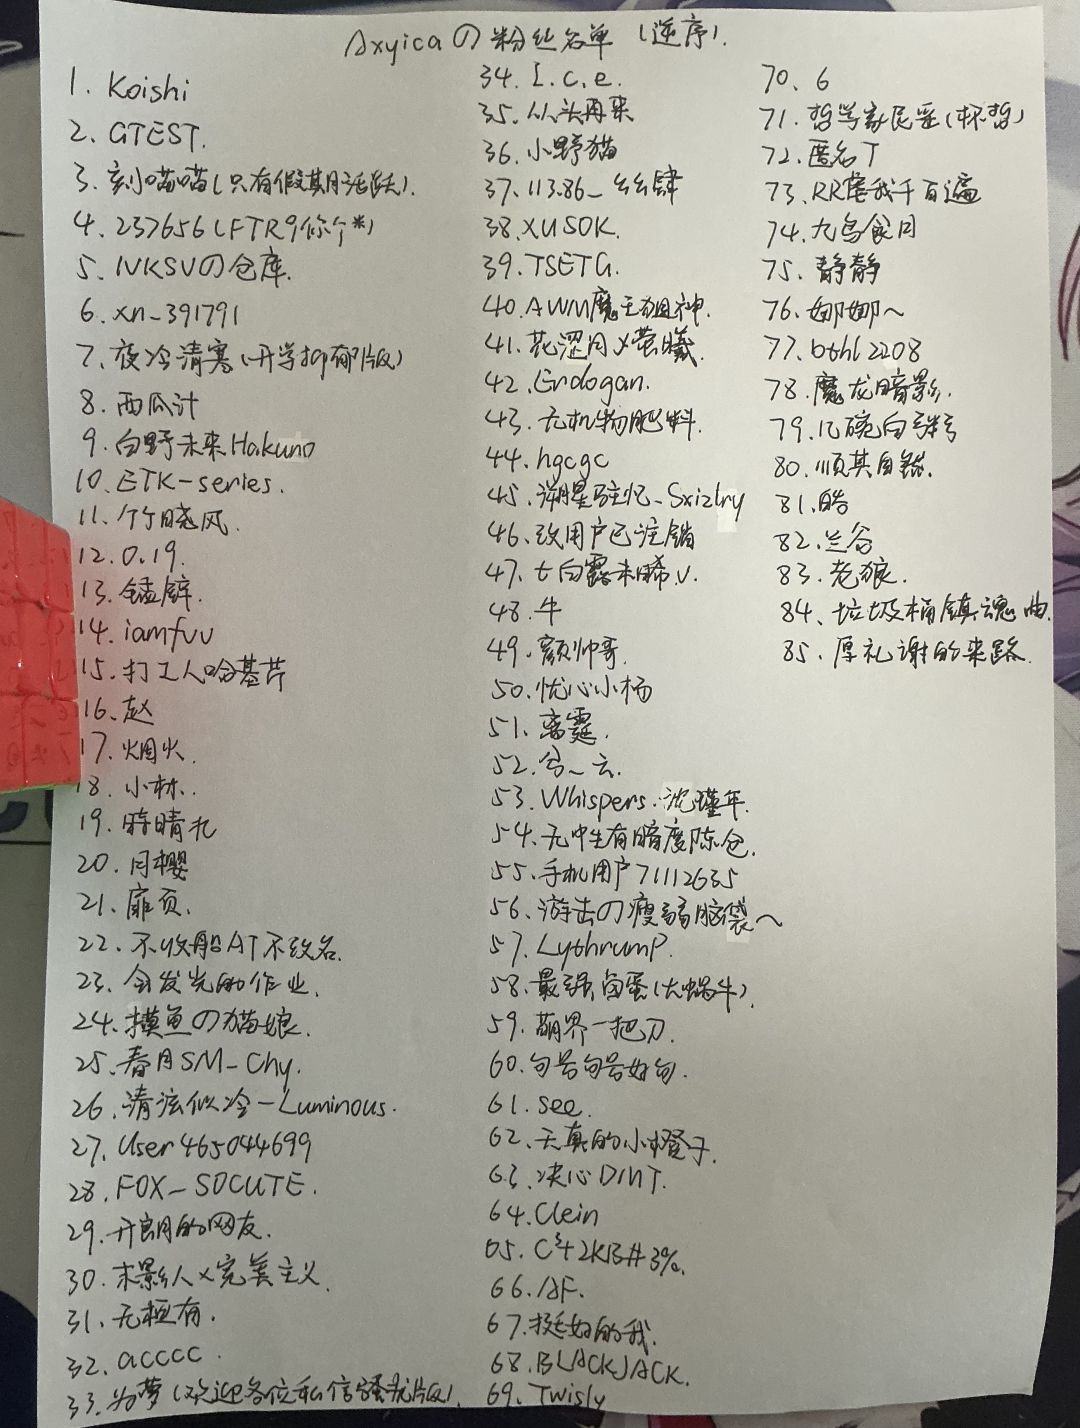 Axyicaの粉丝名单（逆序）.
1. Koishi
2. GTEST.
3. 刻喵喵（只有假期活跃）.
4. 237656（FTR9你个*）
5. NKSVの仓库.
6. xn_391791
7. 夜冷清寒（开学抑郁版）
8. 西瓜汁
9. 白野未来Hakuno
10. ETK-series.
11. 竹晓风.
12. 0.19.
13. 锰锌.
14. iamfuu
15. 打工人哈基芹
16. 赵
17. 烟火.
18. 小林.
19. 時晴札
20. 月樱
21. 扉页.
22. 不收船AT不改名.
23. 会发光的作业.
24. 摸鱼の猫娘.
25. 春月SM_Chy.
26. 清泫似冷-Luminous.
27. User465044699
28. FOX_SOCUTE.
29. 开朗的网友.
30. 末影人×完美主义.
31. 无极有.
32. acccc.
33. 为梦（欢迎各位私信骚扰版）.
34. I.c.e.
35. 从头再来
36. 小野猫
37. 113.86_幺幺肆
38. XUSOK.
39. TSETG.
40. AWM魔王狙神.
41. 花涩月×萤曦.
42. Erdogan.
43. 无机物肥料.
44. hgcgc
45. 溯星驻忆_Sxizlry
46. 改用户已注销
47. 七白露未晞.v.
48. 牛
49. 颜帅哥.
50. 忧心小杨
51. 离霆.
52. 兮_云.
53. Whispers.沈瑾年.
54. 无中生有暗度陈仓.
55. 手机用户71112635
56. 游击の瘦弱脑袋～
57. LythrumP.
58. 最强卤蛋（大蜗牛）.
59. 萌界一把刀.
60. 句号句号好句.
61. see.
62. 天真的小橙子.
63. 决心DMT.
64. Clein
65. C³+2KB#3%.
66. AF.
67. 挺好的我.
68. BLACKJACK.
69. Twisly
70. 6
71. 哲学家民巫（杯哲）
72. 匿名丁
73. RR虐我千百遍
74. 九鸟食月
75. 静静
76. 娜娜～
77. bthl2208
78. 魔龙暗影.
79. 亿碗白粥
80. 顺其自然.
81. 皓
82. 兰谷
83. 老狼.
84. 垃圾桶鎮魂曲.
85. 厚礼谢的来路.